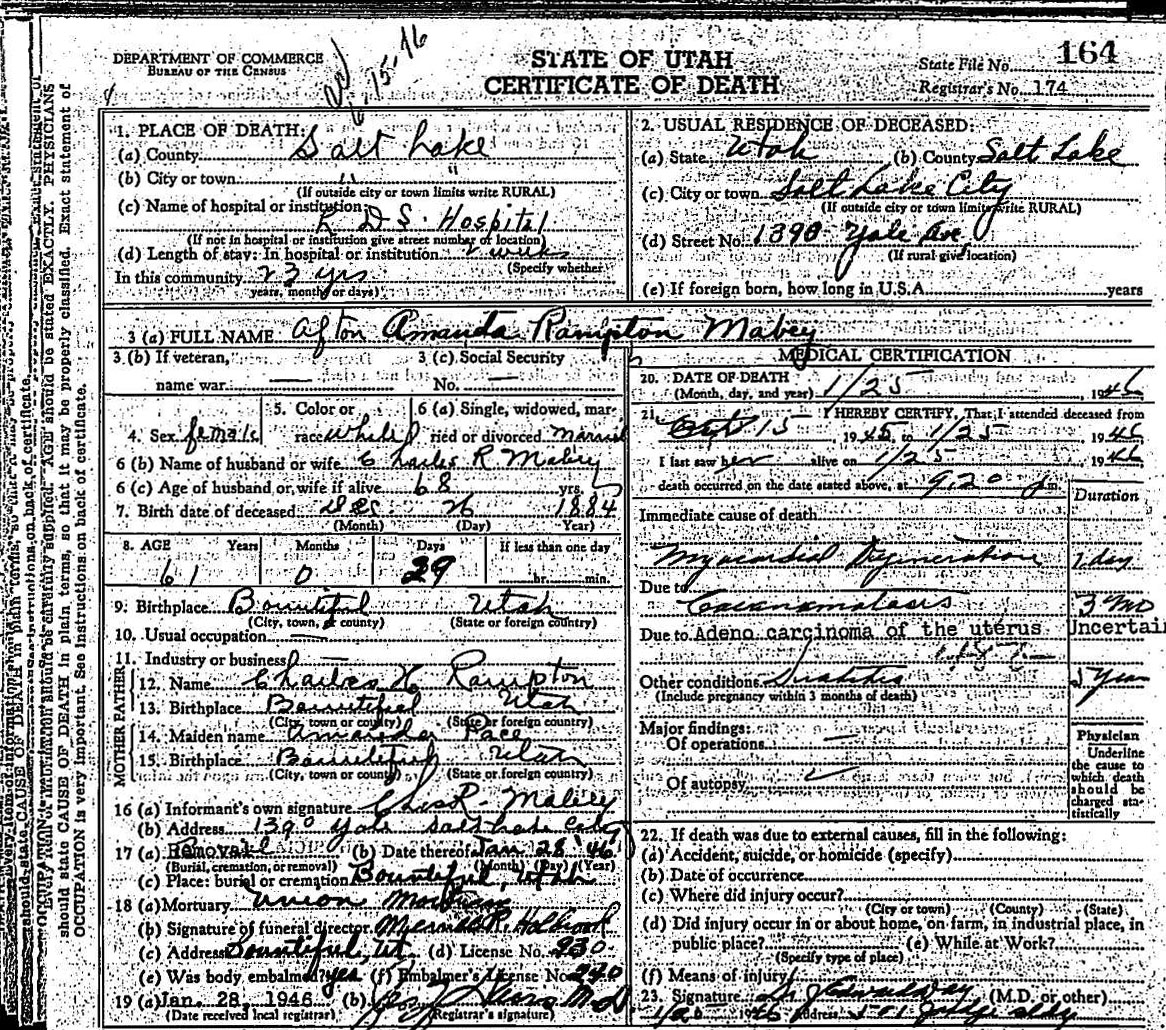 DEPARTMENT OF COMMERCE
BUREAU OF THE CENSUS
15-16
STATE OF UTAH
CERTIFICATE OF DEATH
State File No. 164
Registrar's No. 174
1. PLACE OF DEATH:
(a) County Salt Lake
(b) City or town " "
(If outside city or town limits write RURAL)
(c) Name of hospital or institution:
L D S Hospital
(If not in hospital or institution give street number or location)
(d) Length of stay: In hospital or institution weeks
(Specify whether
In this community 23 yrs
years, months or days)
2. USUAL RESIDENCE OF DECEASED:
(a) State Utah (b) County Salt Lake
(c) City or town Salt Lake City
(If outside city or town limits write RURAL)
(d) Street No. 1390 Yale Ave
(If rural give location)
(e) If foreign born, how long in U.S.A. years
3 (a) FULL NAME Afton Amanda Rampton Mabey
3 (b) If veteran, name war —
3 (c) Social Security No. —
4. Sex female
5. Color or race white
6 (a) Single, widowed, married or divorced Married
6 (b) Name of husband or wife Charles R Mabey
6 (c) Age of husband or wife if alive 68 yrs.
7. Birth date of deceased Dec. 26 1884
(Month) (Day) Year)
8. AGE Years Months Days If less than one day
61 0 29 hr. min.
9. Birthplace Bountiful Utah
(City, town, or county) (State or foreign country)
10. Usual occupation —
11. Industry or business
FATHER
12. Name Charles H Rampton
13. Birthplace Bountiful Utah
(City, town or county) (State or foreign country)
MOTHER
14. Maiden name Amanda Pace
15. Birthplace Bountiful Utah
(City, town or county) (State or foreign country)
16 (a) Informant's own signature Chas R. Mabey
(b) Address 1390 Yale Salt Lake City
17 (a) Removal (b) Date thereof Jan 28 '46
(Burial, cremation, or removal) (Month) (Day) (Year)
(c) Place: burial or cremation Bountiful, Utah
18 (a) Mortuary Union Mortuary
(b) Signature of funeral director Holbrook
(c) Address Bountiful, Ut. (d) License No. 230
(e) Was body embalmed? yes (f) Embalmer's License No. 290
19 (a) Jan. 28, 1946 (b) M.D
(Date received local registrar) (Registrar's signature)
MEDICAL CERTIFICATION
20. DATE OF DEATH
(Month, day, and year) 1/25, 1946
21. I HEREBY CERTIFY, That I attended deceased from
Oct 15, 1945 to 1/25, 1946
I last saw her alive on 1/25, 1946
death occurred on the date stated above, at 9.20 m.
Duration
Immediate cause of death
Myocardial Degeneration 1 day
Due to
Carcinomatosis 3 mo
Due to Adeno carcinoma of the uterus Uncertain
Other conditions Year
(Include pregnancy within 3 months of death)
Major findings:
Of operations —
Of autopsy
Physician
Underline
the cause to
which death
should be
charged sta-
tistically
22. If death was due to external causes, fill in the following:
(a) Accident, suicide, or homicide (specify)
(b) Date of occurrence
(c) Where did injury occur?
(City or town) (County) (State)
(d) Did injury occur in or about home, on farm, in industrial place, in
public place? (e) While at Work?
(Specify type of place)
(f) Means of injury
23. Signature (M.D. or other)
Address
should state CAUSE OF DEATH in plain terms, so that it may be properly classified. Exact statement of
OCCUPATION is very important. See instructions on back of certificate.